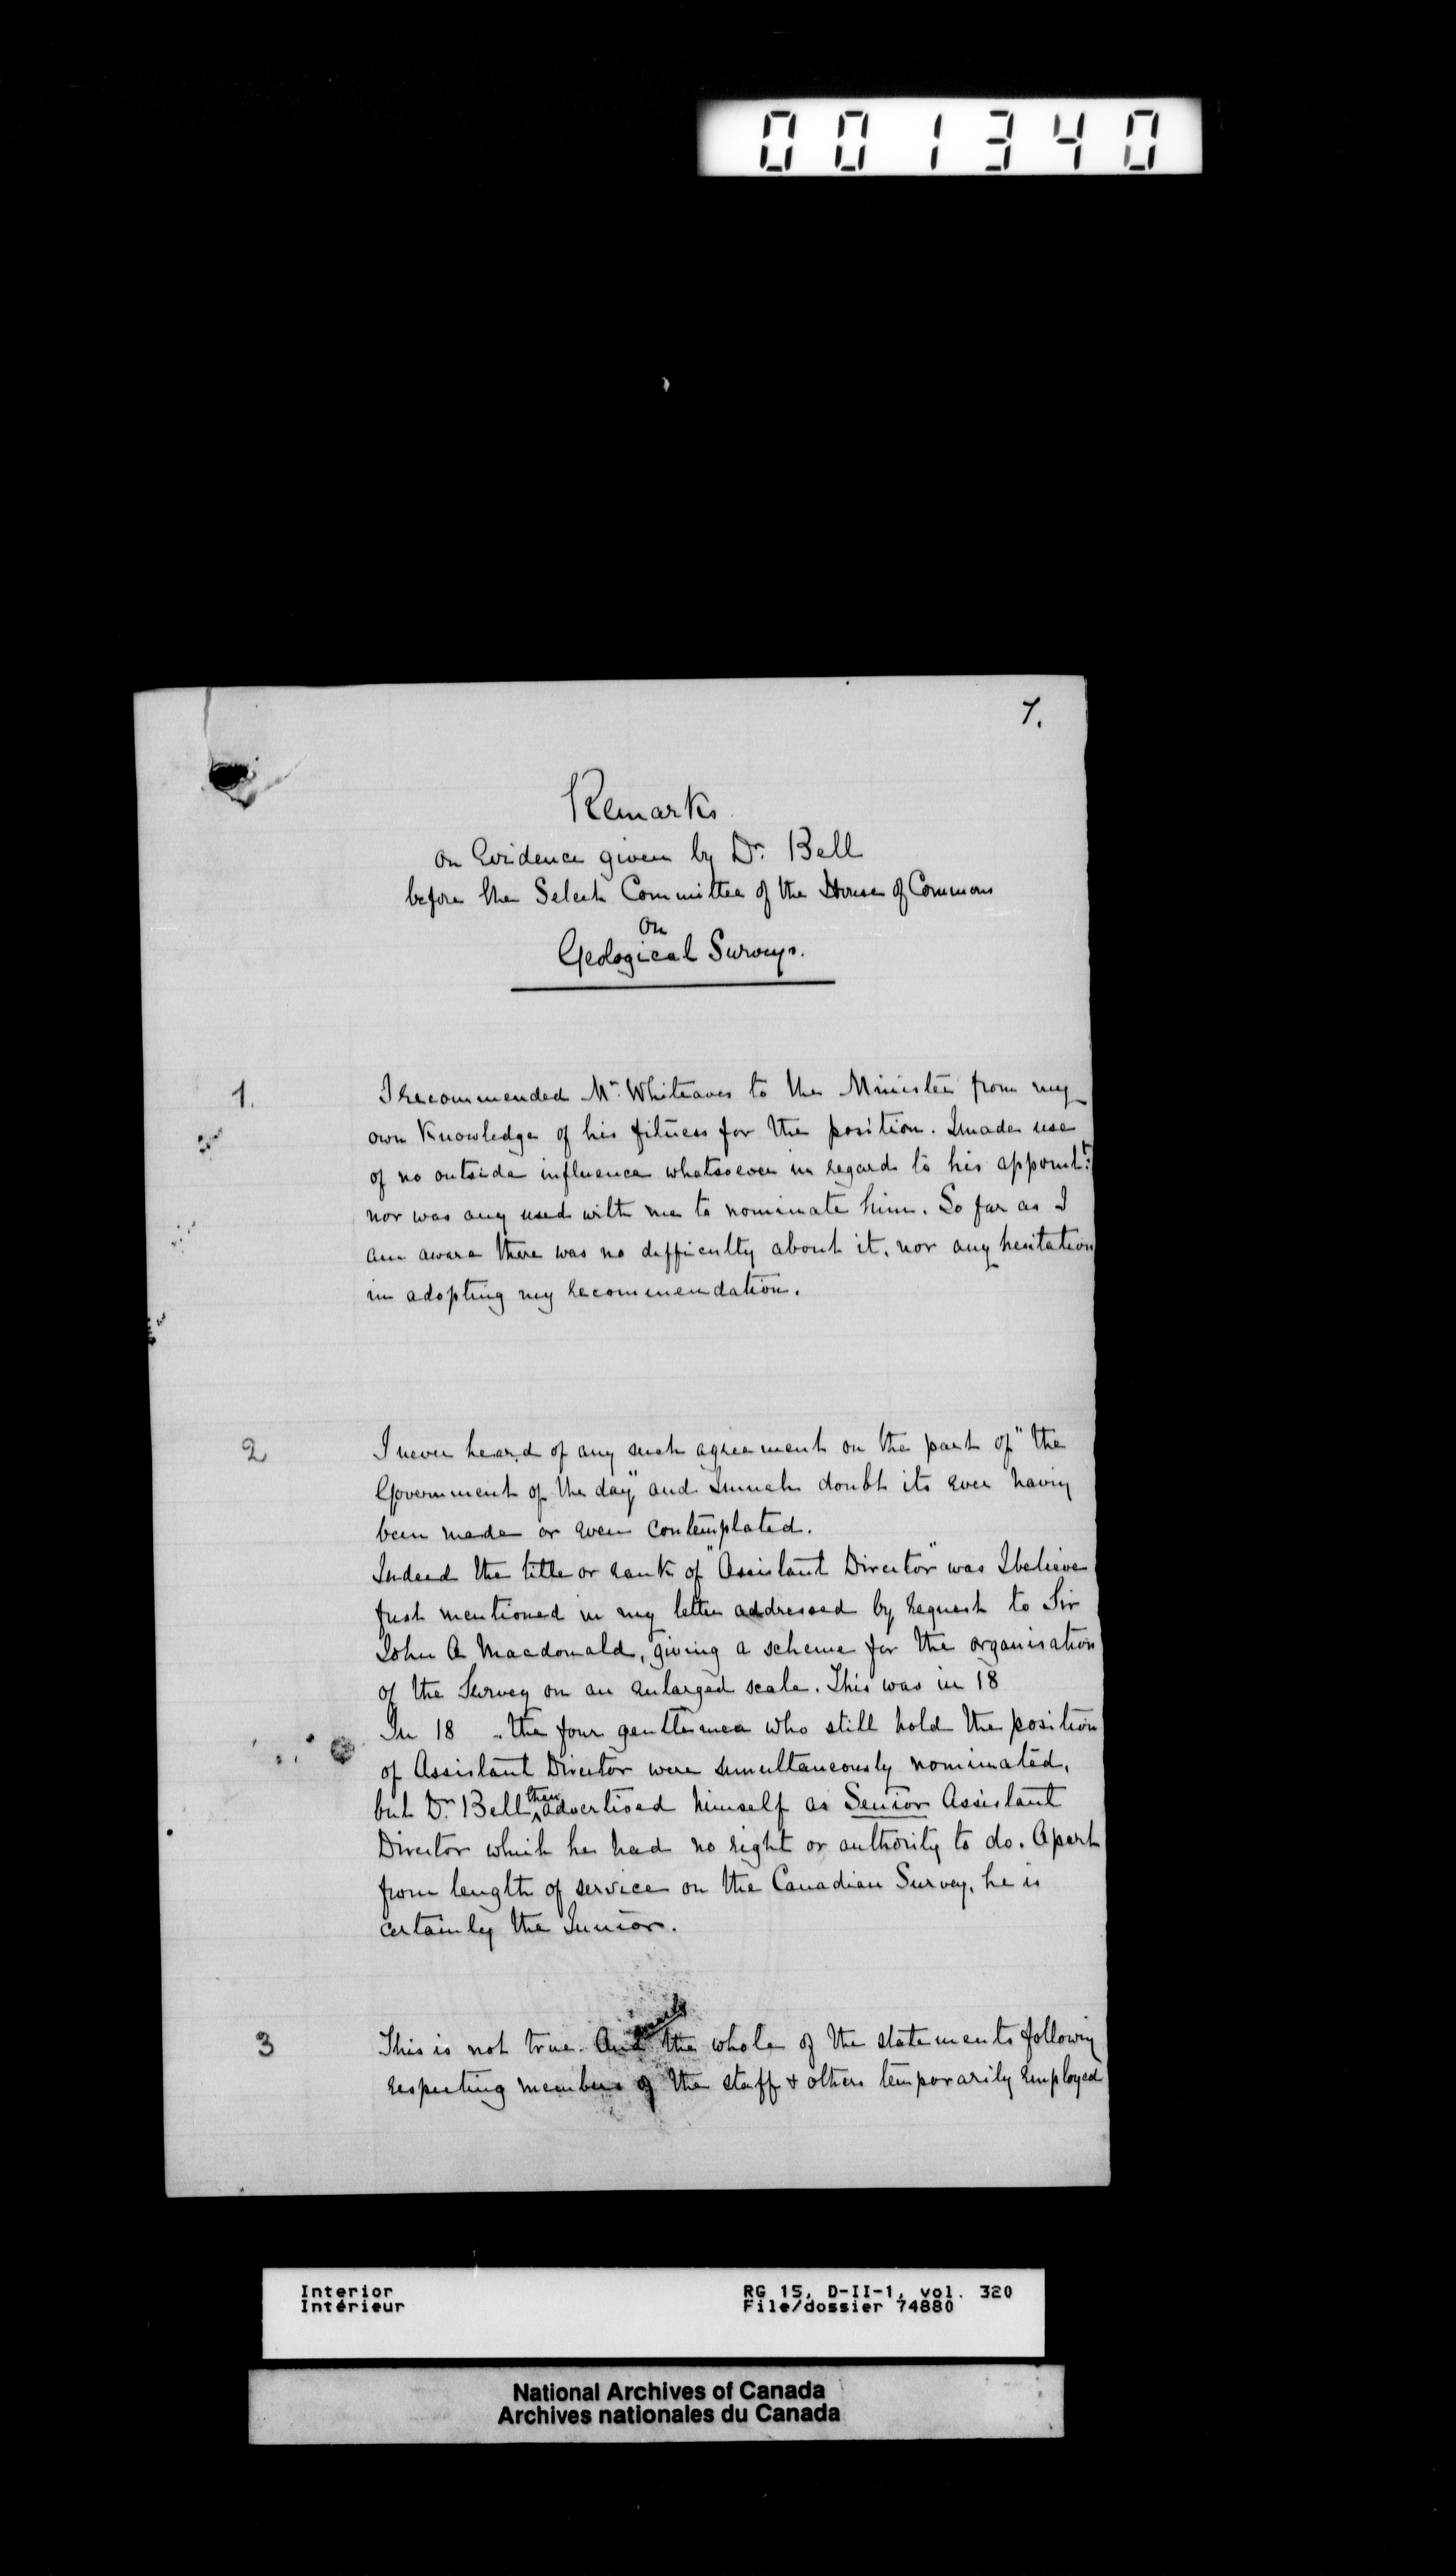 001340
1.
Remarks
on Evidence given by Dr. Bell
before the Select Committee of the House of Commons
on
Geological Surveys.
1. I recommended Mr. Whiteaves to the Minister from my
own Knowledge of his fitness for the position. I made use
of no outside influence whatsoever in regard to his appoint.t
nor was any used with me to nominate him. So far as I
am aware there was no difficulty about it, nor any hesitation
in adopting my recommendation.
2 I never heard of any such agreement on the part of "the
Government of the day" and I much doubt its ever having
been made or even contemplated.
Indeed the title or rank of "Assistant Director" was I believe
first mentioned in my letter addressed by request to Sir
John A Macdonald, giving a scheme for the organisation
of the Survey on an enlarged scale. This was in 18
In 18 the four gentlemen who still hold the position
of Assistant Director were simultaneously nominated,
but Dr. Bell then advertised himself as Senior Assistant
Director which he had no right or authority to do. Apart
from length of service on the Canadian Survey, he is
certainly the Junior.
3 This is not true. And nearly the whole of the statements following
respecting members of the staff & others temporarily employed
Interior
Intérieur
RG 15, D-II-1, vol. 320
File/dossier 74880
National Archives of Canada
Archives nationales du Canada